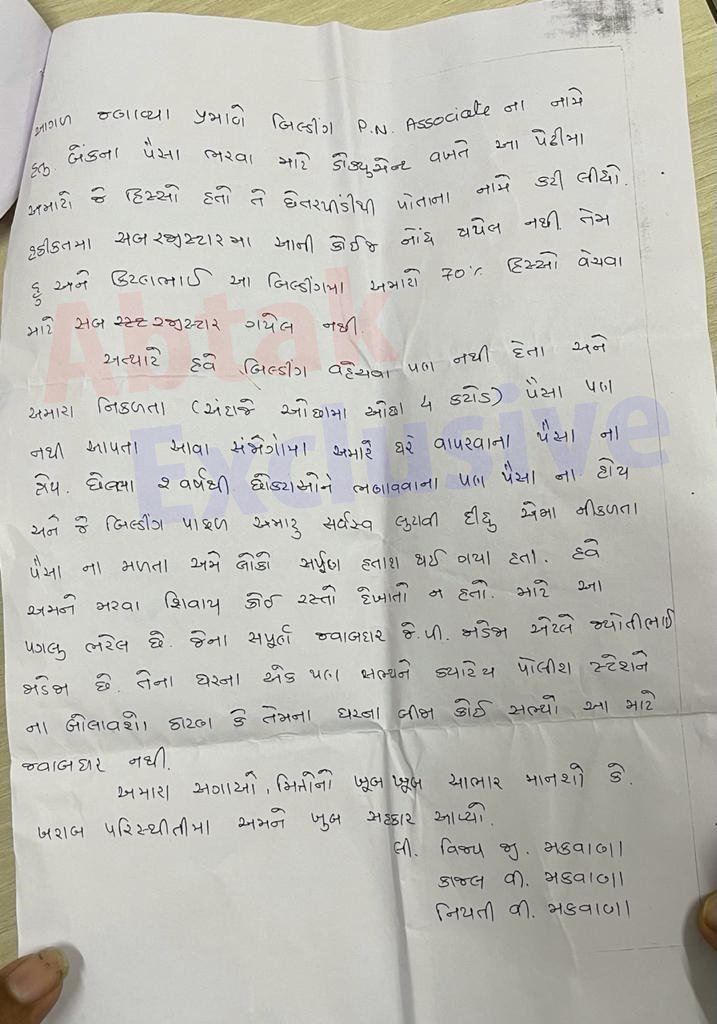 આગળ જણાવ્યા પ્રમાણે બિલ્ડીંગ P.N. Associate ના નામે
હતુ. બેંકના પૈસા ભરવા માટે ડોક્યુમેન્ટ વખતે આ પેઢીમા
અમારો જે હિસ્સો હતો તે છેતરપીંડીથી પોતાના નામે કરી લીધો.
હકીકતમા સબ રજીસ્ટારમા આની કોઈજ નોંધ થયેલ નથી. તેમ
હુ અને આ બિલ્ડીંગમા અમારો 70% હિસ્સો વેચવા
માટે સબ રજીસ્ટાર ગયેલ નથી.
અત્યારે હવે બિલ્ડીંગ વહેચવા પણ નથી દેતા અને
અમારા નિકળતા (અંદાજે ઓછામા ઓછા 4 કરોડ) પૈસા પણ
નથી આપતા આવા સંજોગોમા અમારે ઘરે વાપરવાના પૈસા ના
હોય. છેલ્લા ૨ વર્ષથી છોકરાઓને ભણાવવાના પણ પૈસા ના હોય
અને જે બિલ્ડીંગ પાછળ અમારુ સર્વસ્વ લુટાવી દીધુ એમા નીકળતા
પૈસા ના મળતા અમે લોકો સંપુર્ણ હતાશ થઈ ગયા હતા. હવે
અમને મરવા શિવાય કોઈ રસ્તો દેખાતો ન હતો. માટે આ
પગલુ ભરેલ છે. જેના સપૂર્ણ જવાબદાર જે.પી. જાડેજા એટલે જ્યોતીભાઈ
જાડેજા છે. તેના ઘરના એક પણ સભ્યને ક્યારેય પોલીશ સ્ટેશને
ના બોલાવશો કારણ કે તેમના ઘરના બીજા કોઈ સભ્યો આ માટે
જવાબદાર નથી.
અમારા સગાઓ, મિત્રોનો ખૂબ ખૂબ આભાર માનશો કે.
ખરાબ પરિસ્થીતીમા અમને ખુબ સહકાર આપ્યો.
લી. વિજય જી. મકવાણા
કાજલ વી. મકવાણા
નિયતી વી. મકવાણા
Abtak
Exclusive